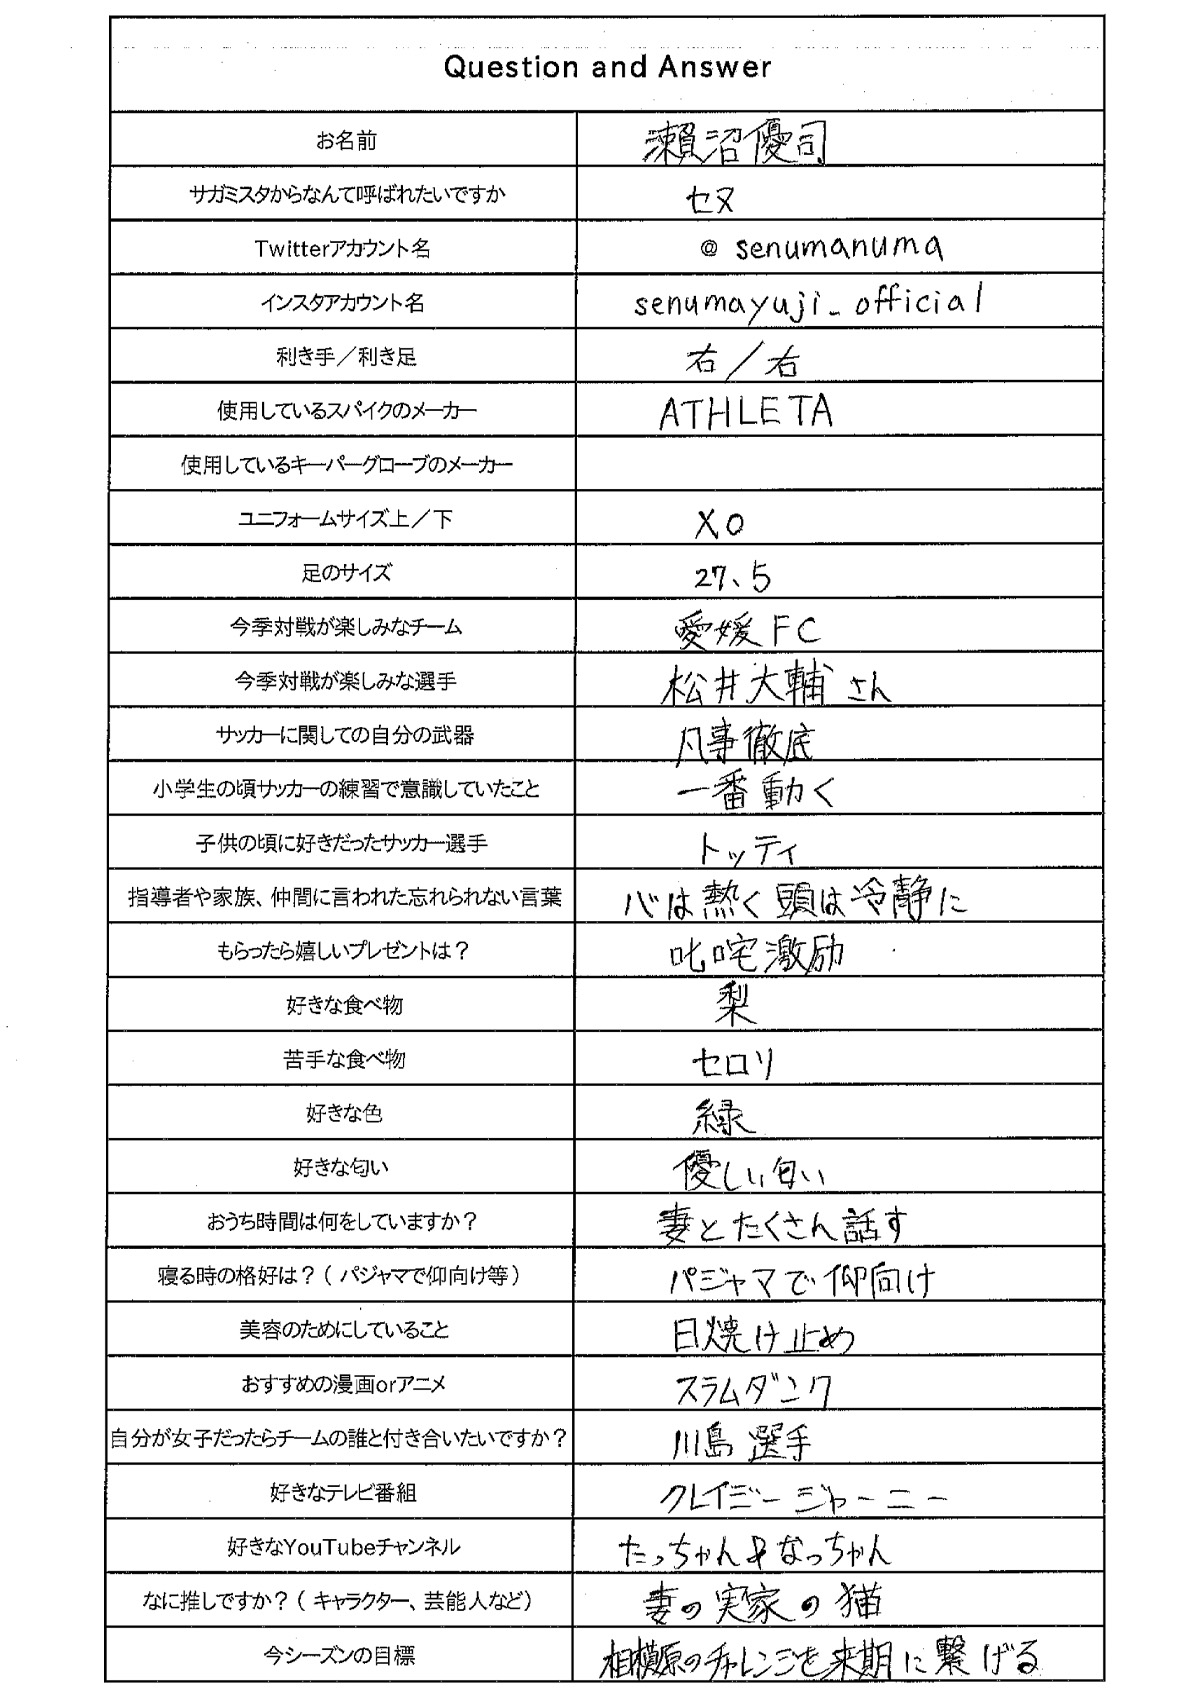 Question and Answer
お名前 瀬沼優司
サガミスタからなんて呼ばれたいですか セヌ
Twitterアカウント名 @ senumanuma
インスタアカウント名 senumayuji_official
利き手／利き足 右／右
使用しているスパイクのメーカー ATHLETA
使用しているキーパーグローブのメーカー
ユニフォームサイズ上／下 XO
足のサイズ 27、5
今季対戦が楽しみなチーム 愛媛FC
今季対戦が楽しみな選手 松井大輔さん
サッカーに関しての自分の武器 凡事徹底
小学生の頃サッカーの練習で意識していたこと 一番動く
子供の頃に好きだったサッカー選手 トッティ
指導者や家族、仲間に言われた忘れられない言葉 心は熱く頭は冷静に
もらったら嬉しいプレゼントは？ 叱咤激励
好きな食べ物 梨
苦手な食べ物 セロリ
好きな色 緑
好きな匂い 優しい匂い
おうち時間は何をしていますか？ 妻とたくさん話す
寝る時の格好は？（パジャマで仰向け等） パジャマで仰向け
美容のためにしていること 日焼け止め
おすすめの漫画orアニメ スラムダンク
自分が女子だったらチームの誰と付き合いたいですか？ 川島選手
好きなテレビ番組 クレイジージャーニー
好きなYouTubeチャンネル たっちゃん&なっちゃん
なに推しですか？（キャラクター、芸能人など） 妻の実家の猫
今シーズンの目標 相模原のチャレンジを来期に繋げる